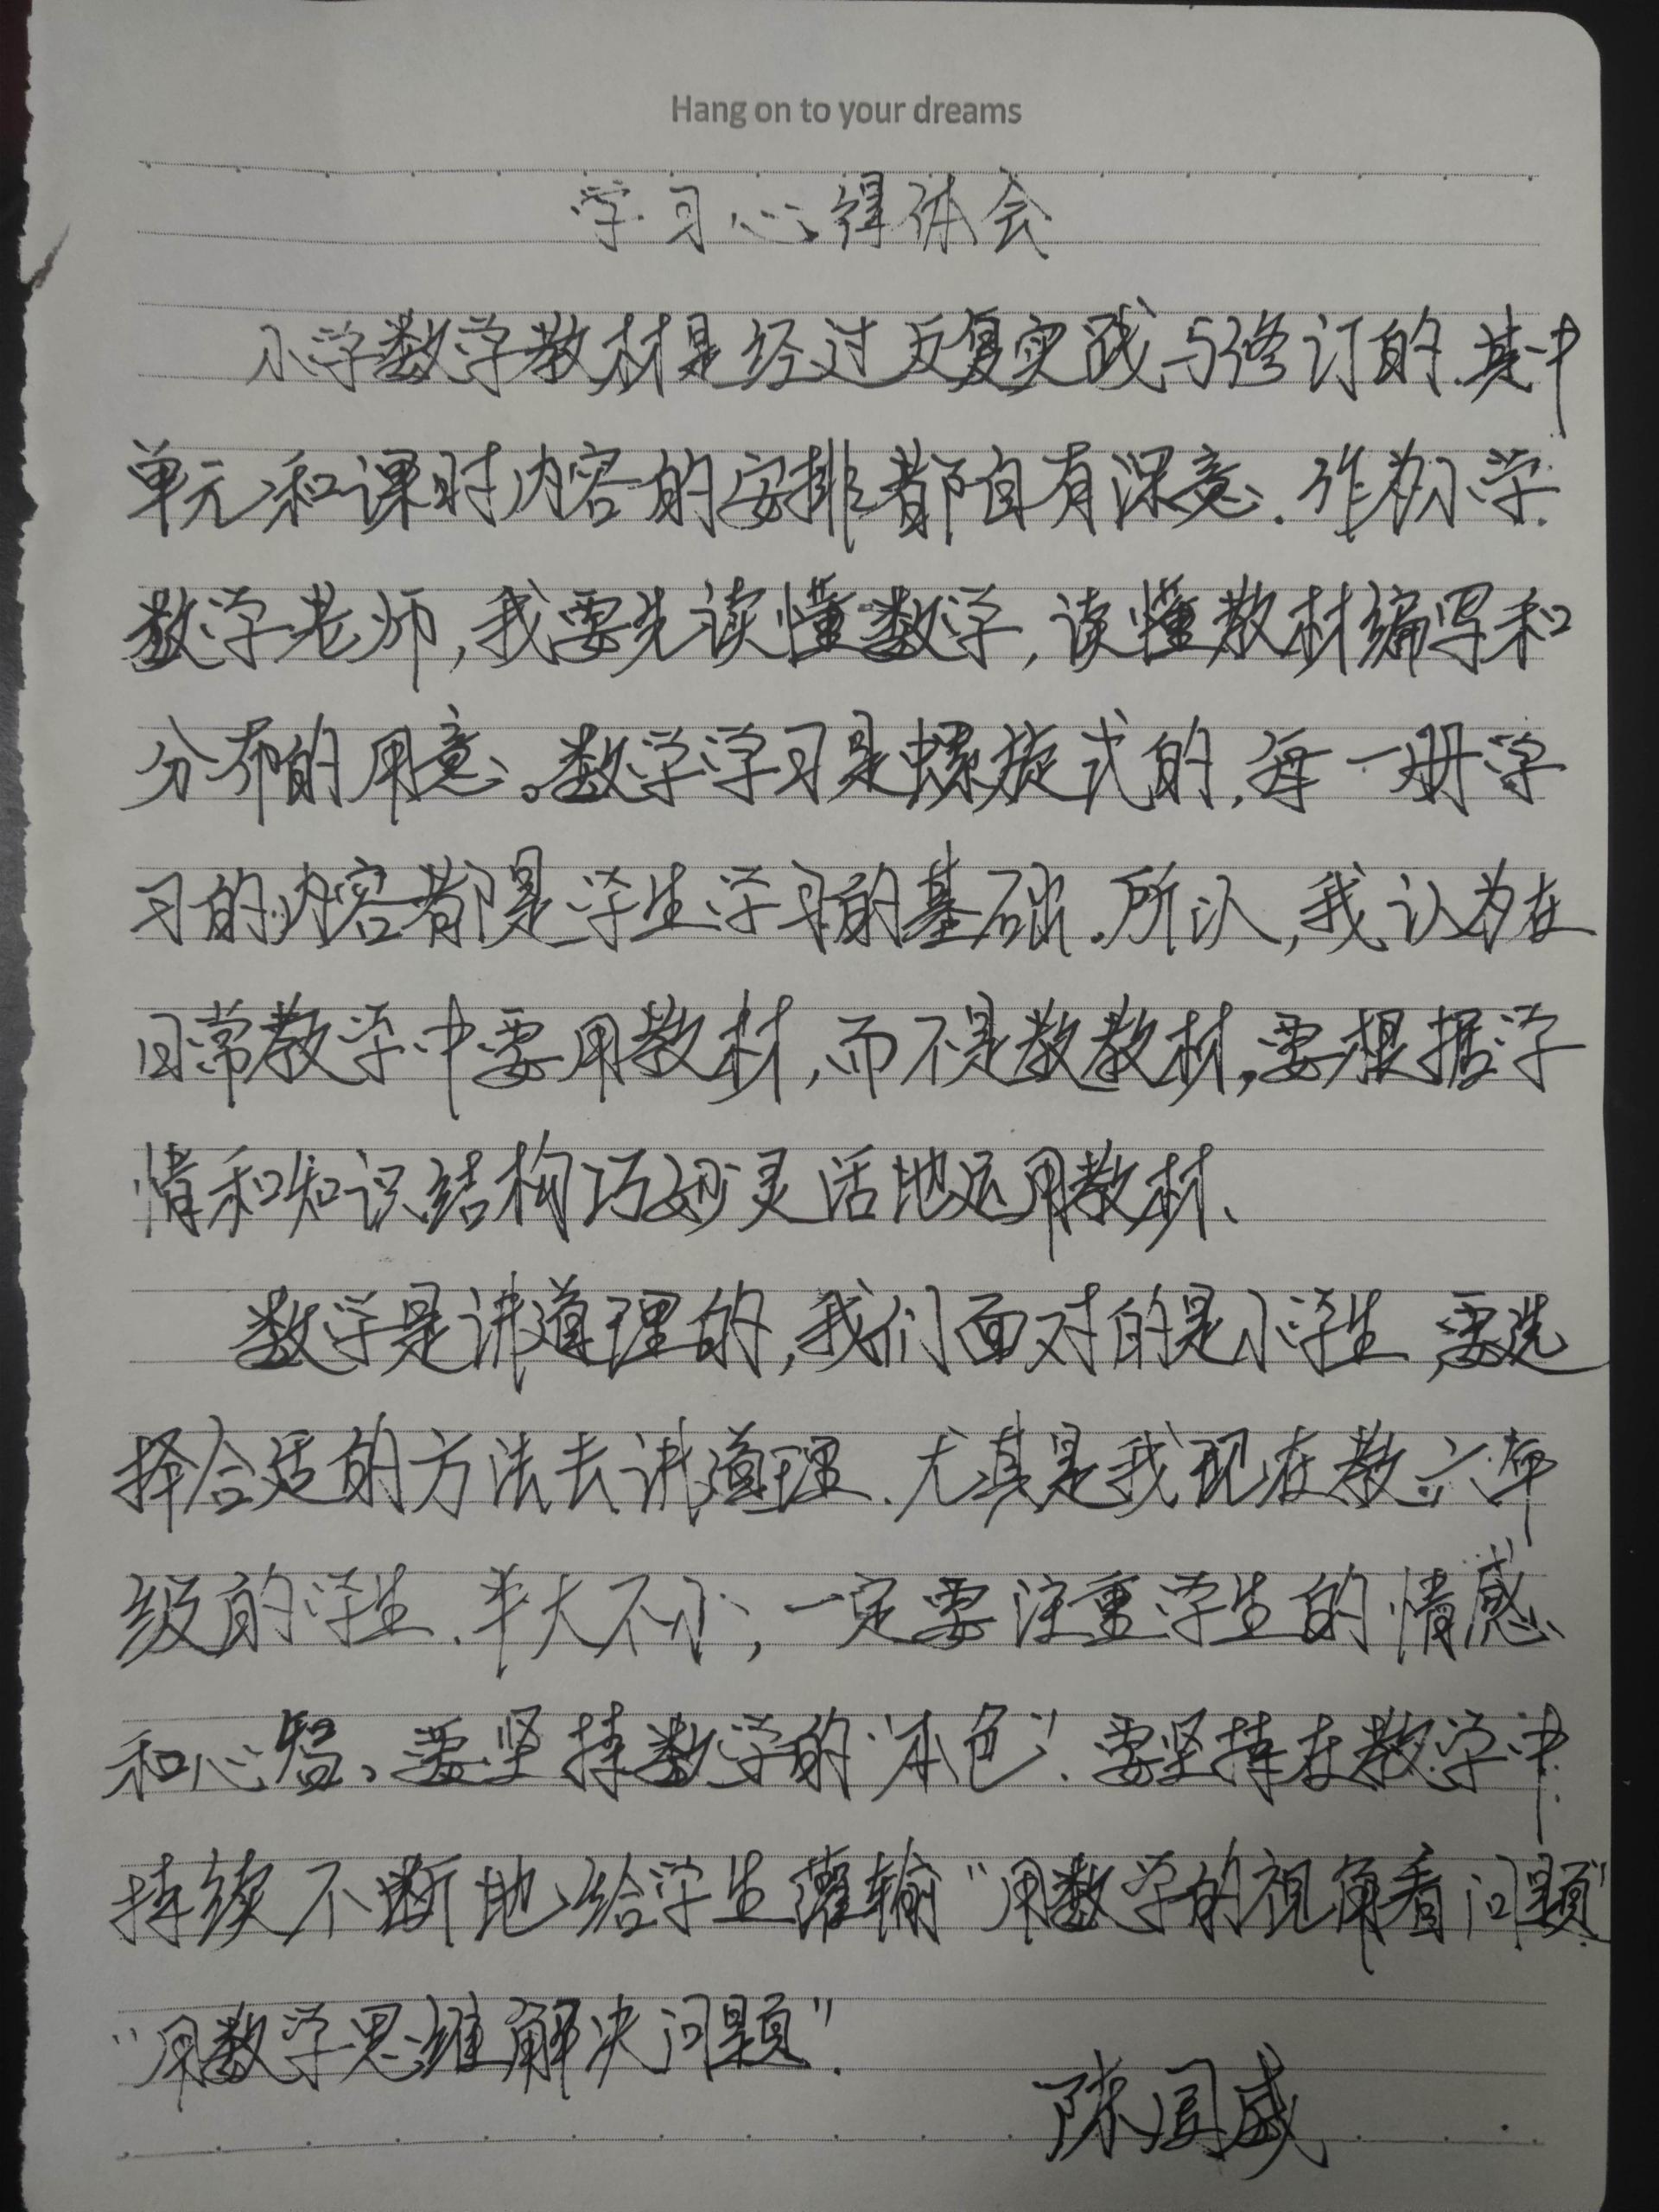 Hang on to your dreams
学习心得体会
小学数学教材是经过反复实践与修订的.其中
单元和课时内容的安排都自有深意.作为小学
数学老师,我要先读懂数学,读懂教材编写和
分布的用意。数学学习是螺旋式的,每一册学
习的内容都是学生学习的基础.所以,我认为在
日常教学中要用教材,而不是教教材,要根据学
情和知识结构巧妙灵活地运用教材、
数学是讲道理的,我们面对的是小学生,要选
择合适的方法去讲道理.尤其是我现在教六年
级的学生.半大不小,一定要注重学生的情感
和心智、要坚持数学的“本色”.要坚持在教学中
持续不断地给学生灌输“用数学的视角看问题”
“用数学思维解决问题”.
陈威